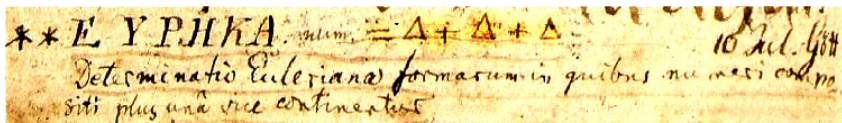 ** ΕΥΡΗΚΑ. num. = Δ + Δ + Δ 10 Jul. Gött
Determinatio Euleriana formarum in quibus numeri compo-
siti plus una vice continentur